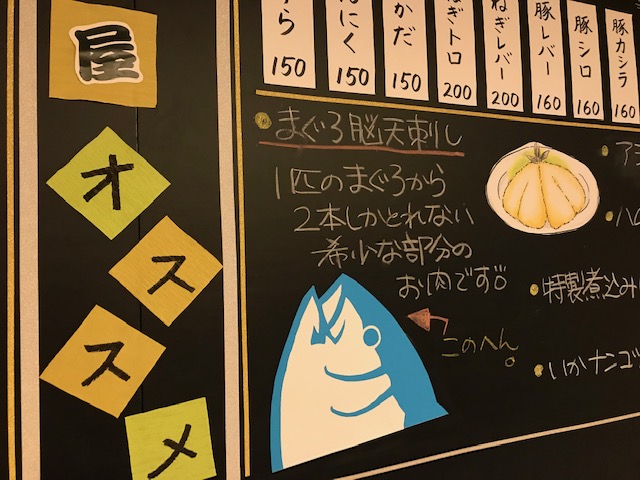 屋
オ
ス
ス
メ
150
にく
150
かだ
150
ねぎトロ
200
ねぎレバー
200
豚レバー
160
豚シロ
160
豚カシラ
160
まぐろ脳天刺し
1匹のまぐろから
2本しかとれない
希少な部分の
お肉です
このへん。
特製煮込み
いかナンコツ